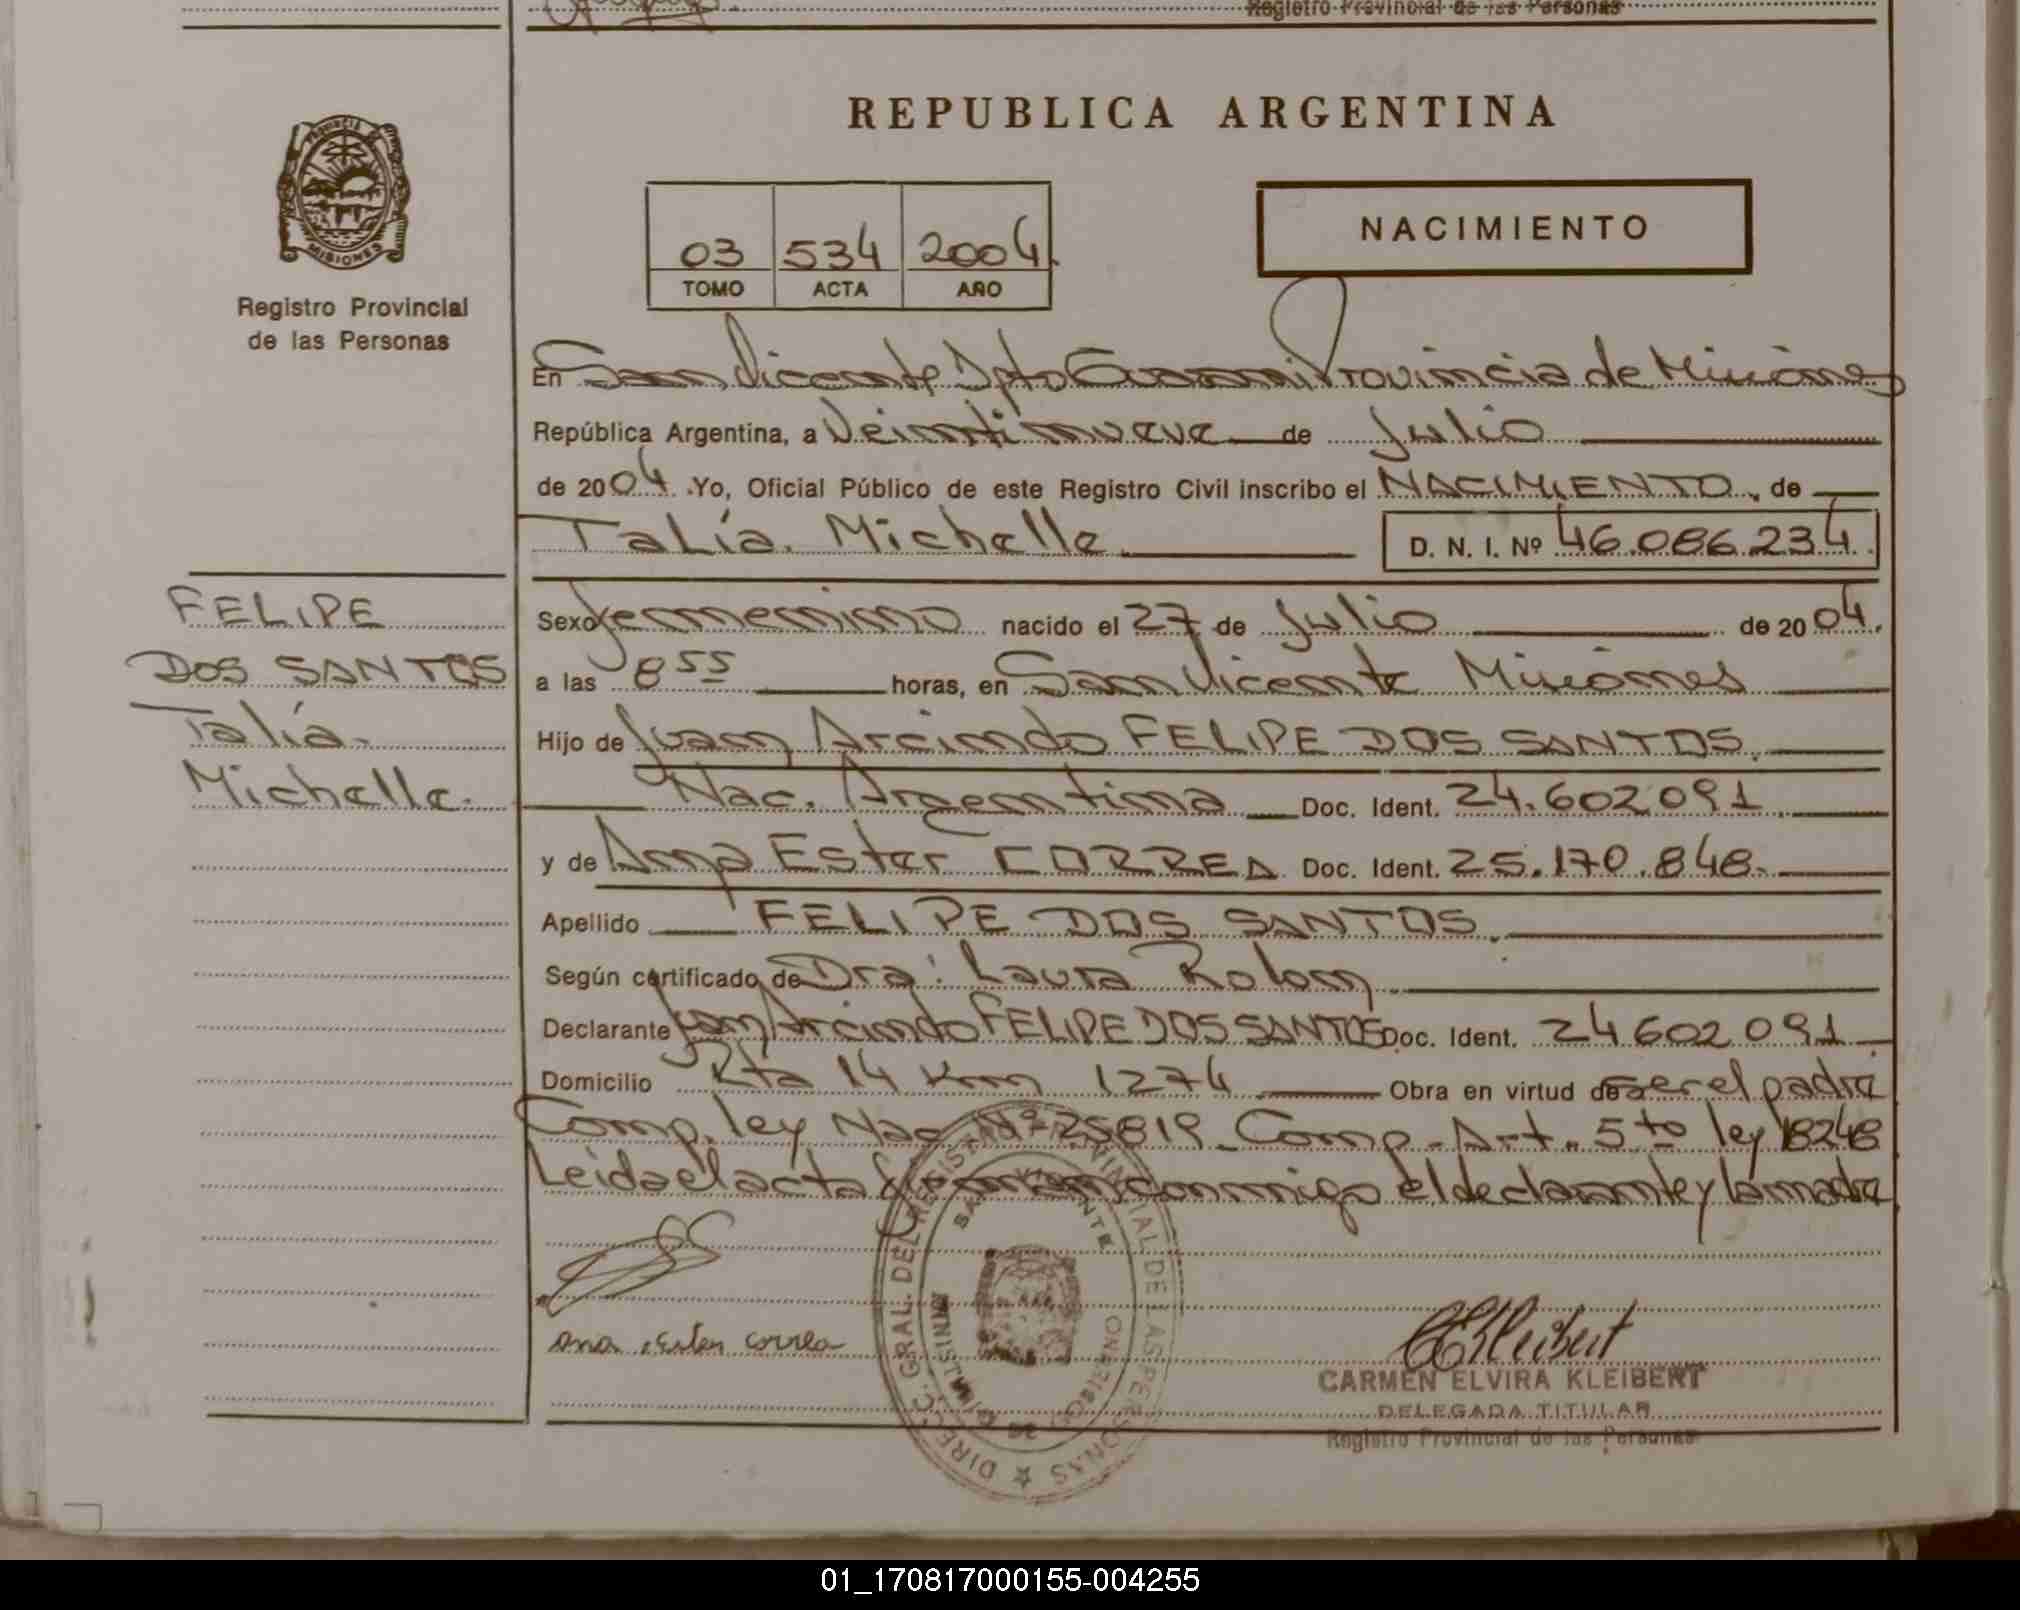 Registro Provincial de las Personas
REPUBLICA ARGENTINA
PROVINCIA
MISIONES
Registro Provincial
de las Personas
03 534 2004
TOMO ACTA AÑO
NACIMIENTO
En San Vicente Dpto Guarani Provincia de Misiones
República Argentina, a Veintinueve de Julio
de 2004. Yo, Oficial Público de este Registro Civil inscribo el NACIMIENTO, de
Talía Michelle D. N. I. Nº 46.086.234
FELIPE
DOS SANTOS
Talía
Michelle.
Sexo femenino nacido el 27 de Julio de 2004.
a las 8 55 horas, en San Vicente Misiones
Hijo de Juan Arcindo FELIPE DOS SANTOS.
Nac. Argentina Doc. Ident. 24.602091
y de Ana Ester CORREA Doc. Ident. 25.170.848.
Apellido FELIPE DOS SANTOS.
Según certificado de Dra: Laura Rolon
Declarante Juan Arcindo FELIPE DOS SANTOS Doc. Ident. 24602091
Domicilio Rta 14 Km 1274 Obra en virtud de ser el padre
Comp. ley Nac Nº 25819 Comp. Art. 5to ley 18248
Leida el acta firman conmigo el declarante y la madre
Ana Ester Correa
DIREC. GRAL. DEL REGIST. PROVINCIAL DE LAS PERSONAS
SAN VICENTE
MISIONES
CKleibert
CARMEN ELVIRA KLEIBERT
DELEGADA TITULAR
Registro Provincial de las Personas
01_170817000155-004255